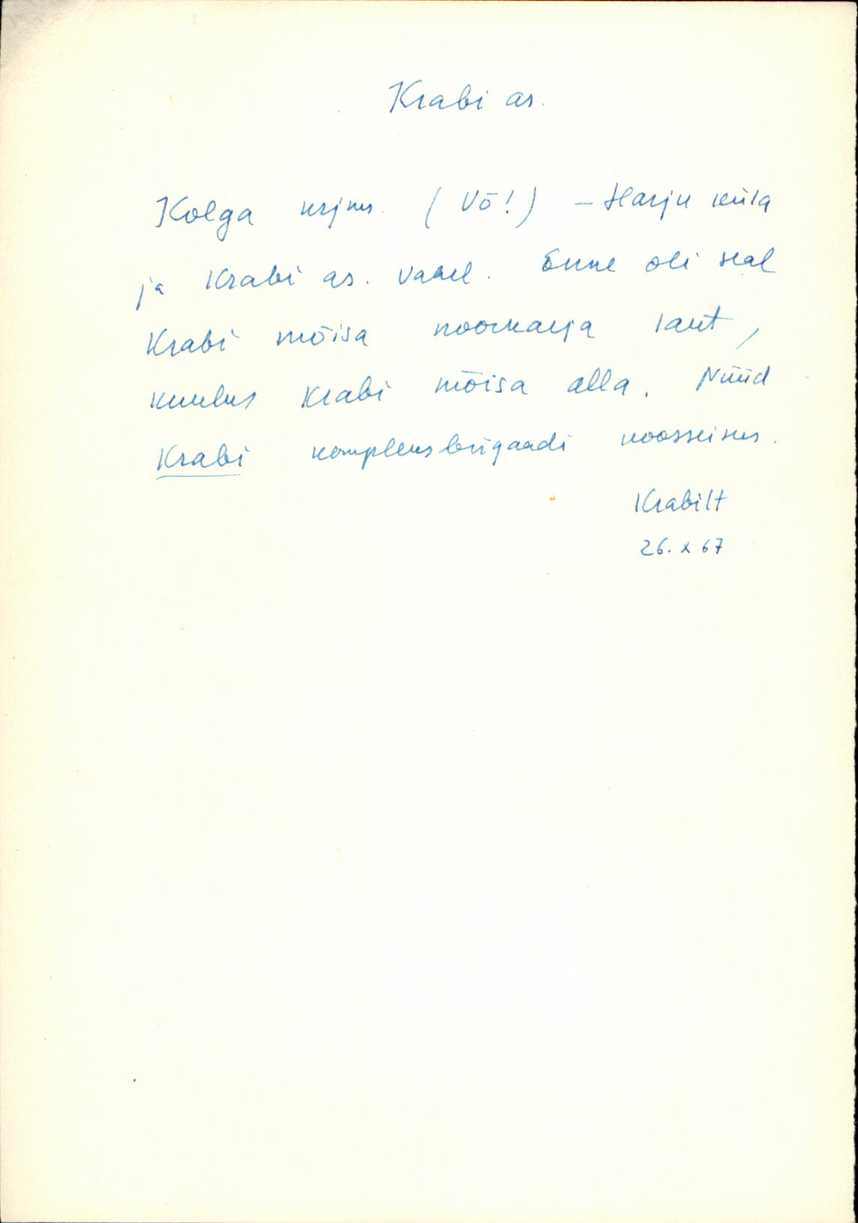 Krabi as.
Kolga krjus. (Võ!) – Harju küla
ja Krabi as. vahel. Enne oli seal
Krabi mõisa noorkarja laut,
kuulus Krabi mõisa alla. Nüüd
Krabi kompleksbrigaadi koosseisus.
Krabilt
26. X 67